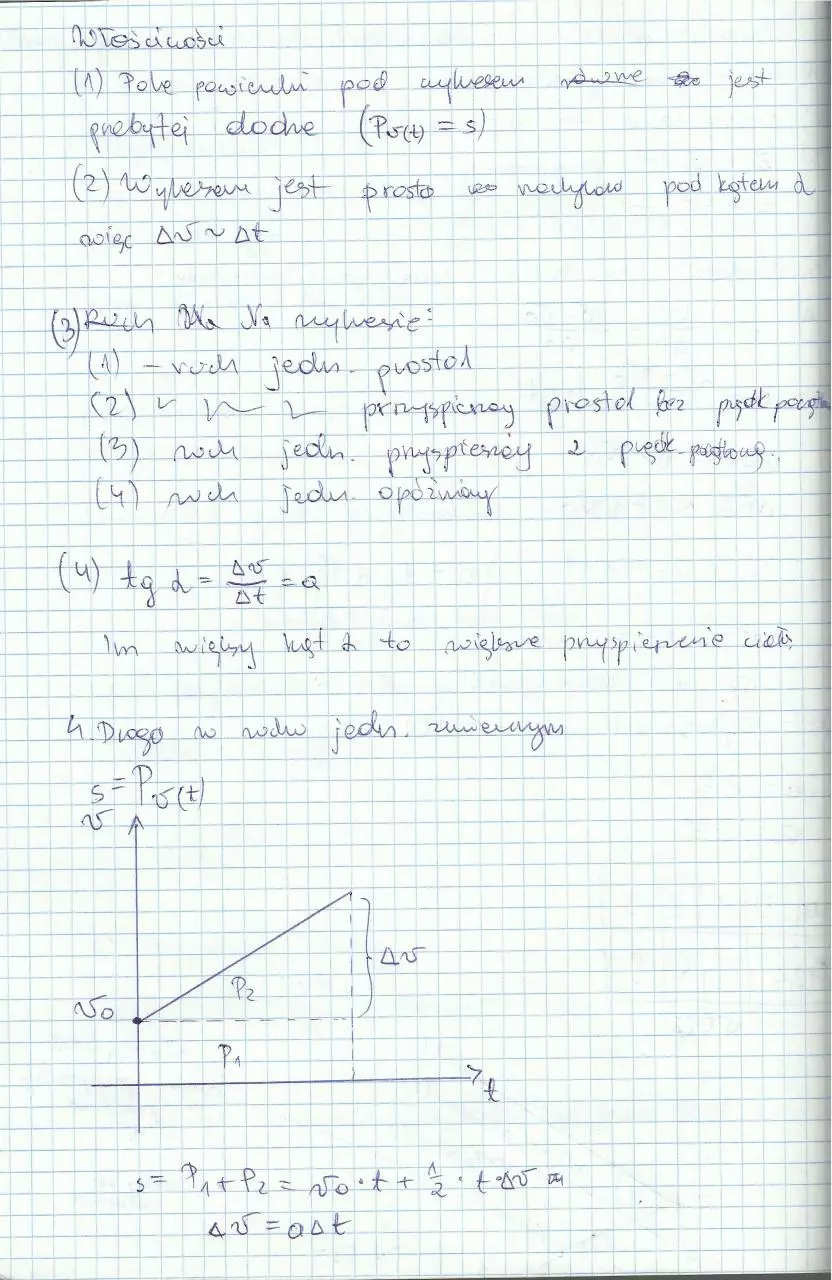 Własności
(1) Pole powierzchni pod wykresem jest
przebytej drodze (Pv(t) = s)
(2) Wykresem jest prosta nachylona pod kątem α
więc Δv ~ Δt
(3) Ruch Na wykresie:
(1) – ruch jedn. prostol
(2) przyspieszony prostol bez prędk początk
(3) ruch jedn. przyspieszony z prędk. początkową.
(4) ruch jedn. opóźniony
(4) tg α = Δv/Δt = a
Im większy kąt α to większe przyspieszenie ciała
4. Droga w ruchu jedn. zmiennym
s = Pv(t)
v
Δv
P2
v0
P1
t
s = P1 + P2 = v0 · t + 1/2 · t · Δv =
Δv = aΔt